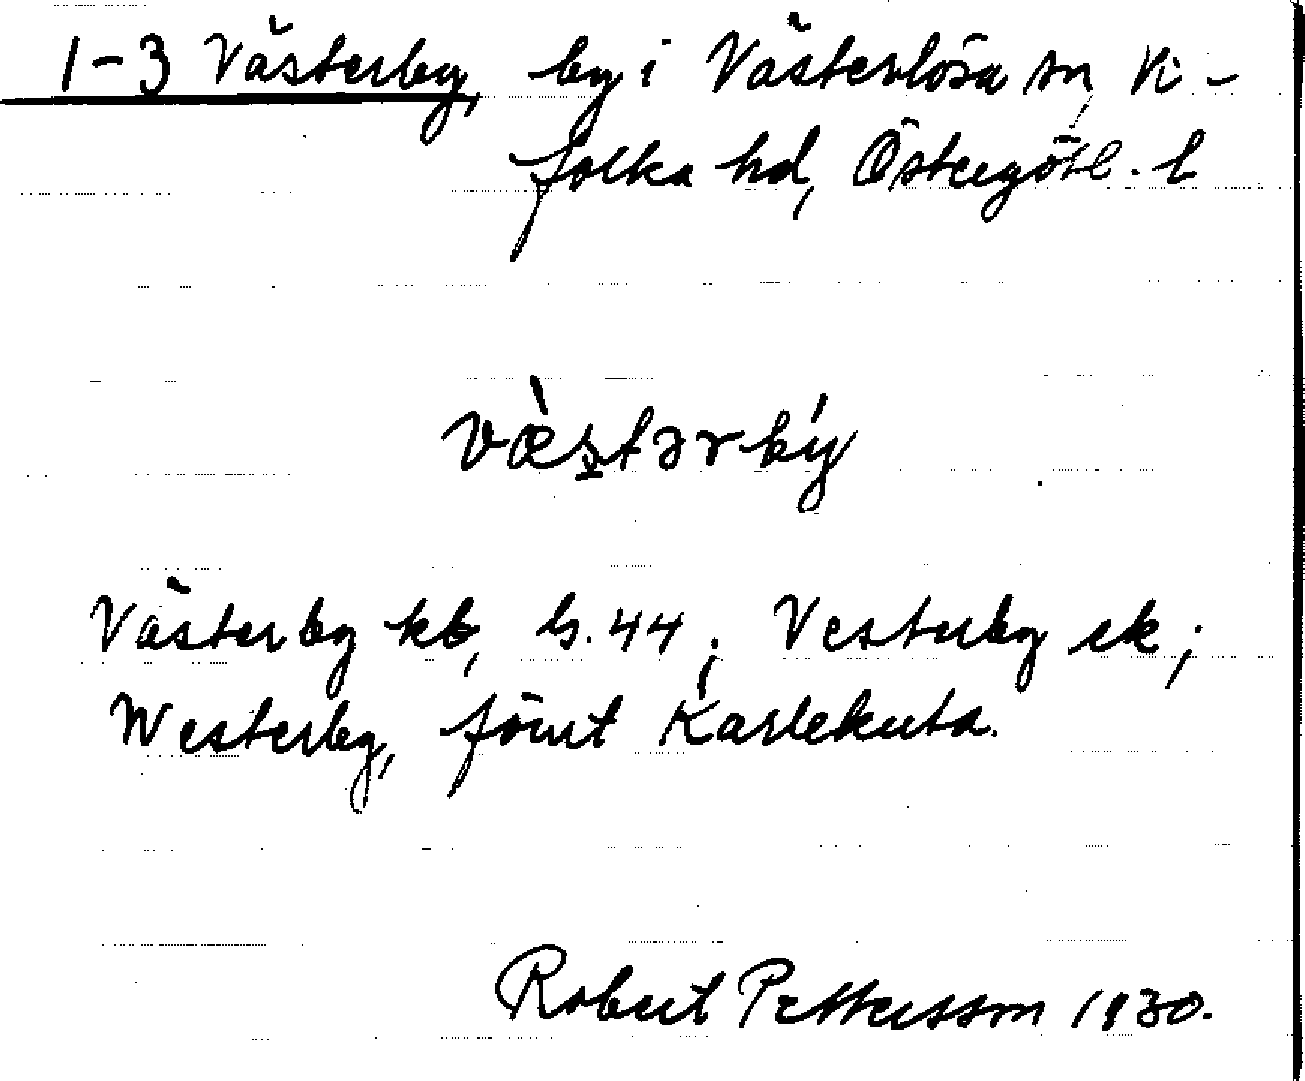 1-3 Västerby, by i Västerlösa sn, Vi-
folka hd, Östergötl. l
væ̀stərbý
Västerby kb, hs. 44; Vesterby ek;
Westerby, förut Karlekuta.
Robert Pettersson 1930.